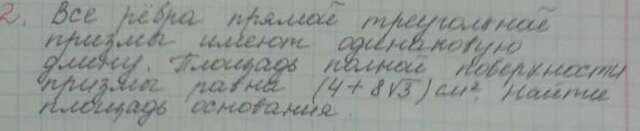 2. Все рёбра прямой треугольной
призмы имеют одинаковую
длину. Площадь полной поверхности
призмы равна (4+8√3) см². Найти
площадь основания.